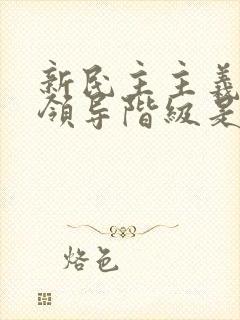 新民主主義
領导階級是
烙色